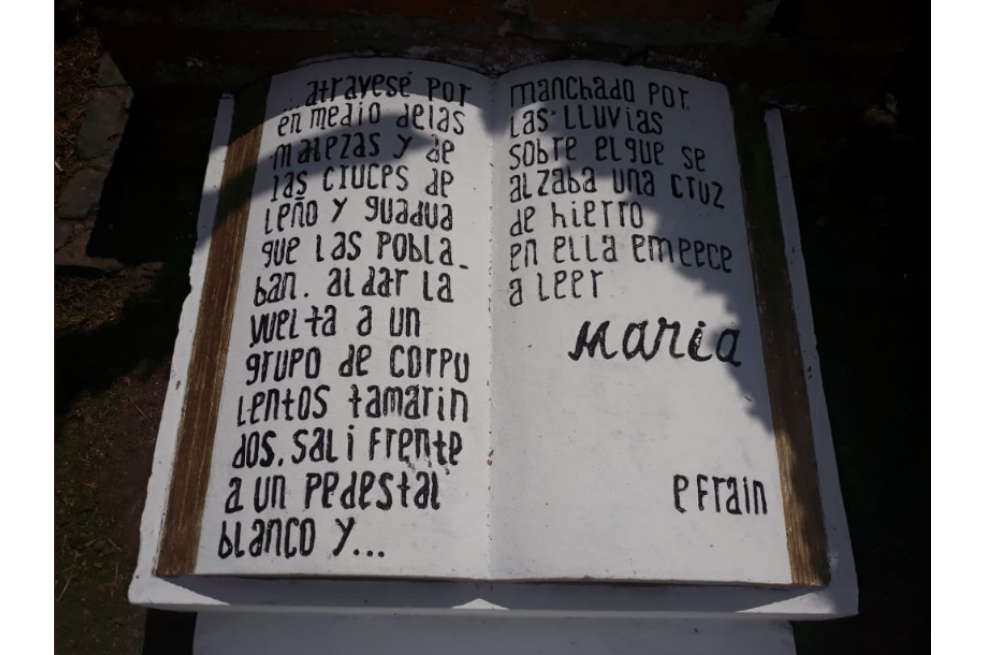 ...atravesé por
en medio de las
malezas y de
las cruces de
leño y guadua
que las pobla_
ban. al dar la
vuelta a un
grupo de corpu
lentos tamarin
dos, sali frente
a un pedestal
blanco y...
manchado por
las lluvias
sobre el que se
alzaba una cruz
de hierro
en ella emeece
a leer
Maria
efrain